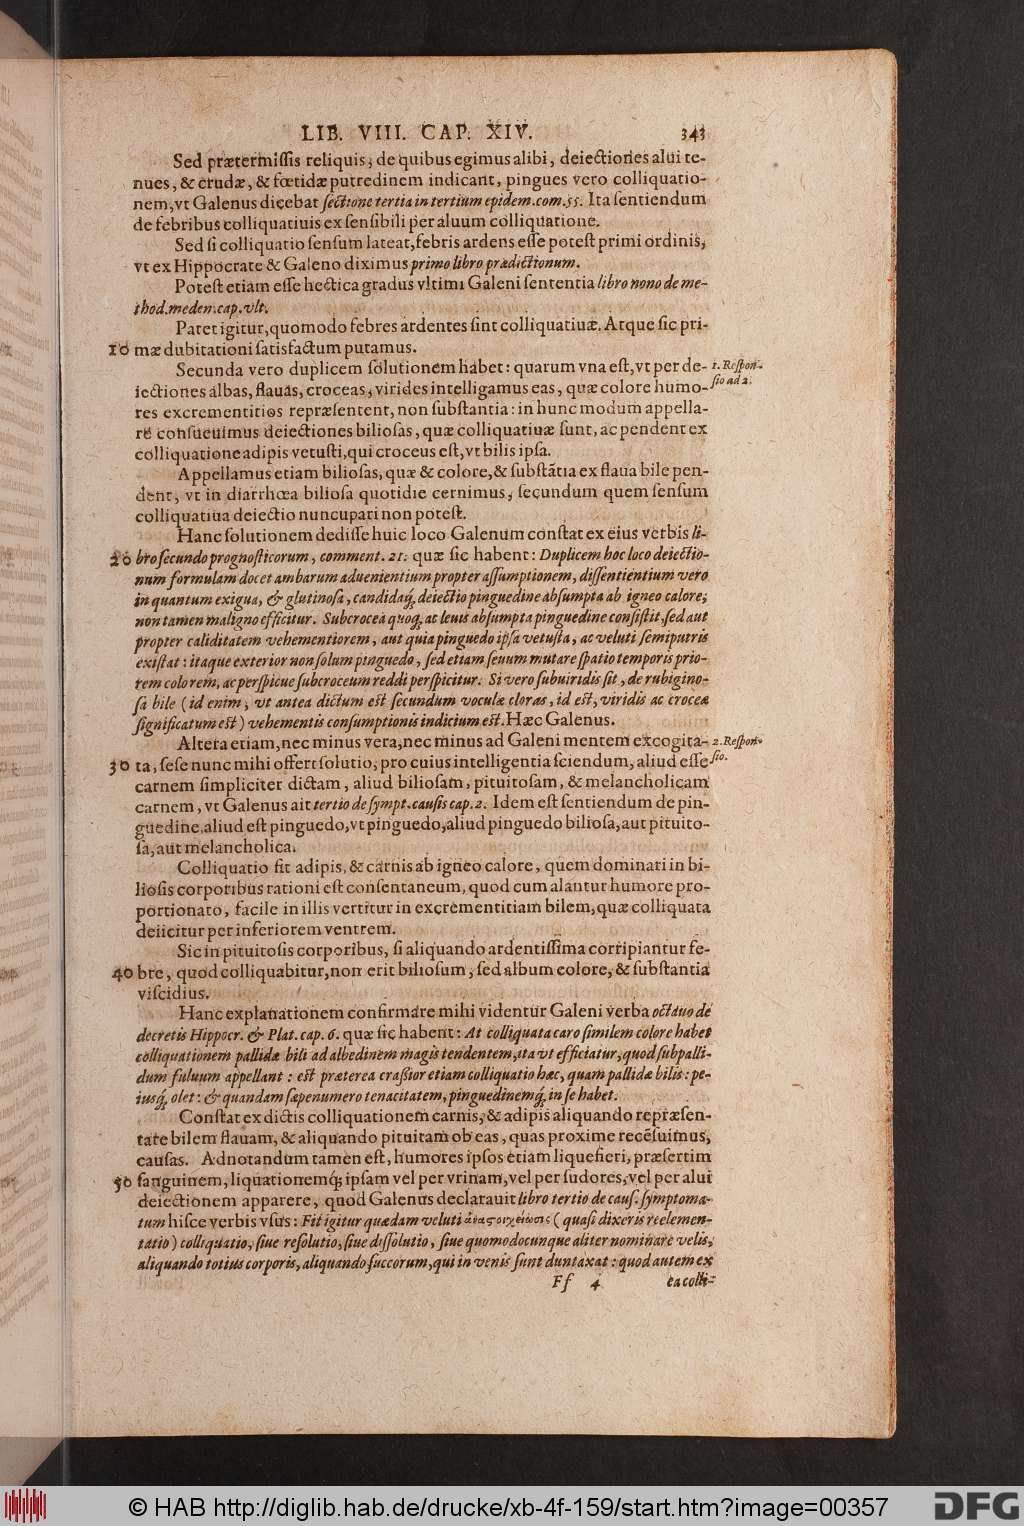 LIB. VIII. CAP. XIV. 343
Sed prætermiſſis reliquis, de quibus egimus alibi, deiectiones alui te-
nues, & crudæ, & fœtidæ putredinem indicant, pingues vero colliquatio-
nem, vt Galenus dicebat ſectione tertia in tertium epidem. com. 55. Ita ſentiendum
de febribus colliquatiuis ex ſenſibili per aluum colliquatione.
Sed ſi colliquatio ſenſum lateat, febris ardens eſſe poteſt primi ordinis,
vt ex Hippocrate & Galeno diximus primo libro prædictionum.
Poteſt etiam eſſe hectica gradus vltimi Galeni ſententia libro nono de me-
thod. meden. cap. vlt.
Patet igitur, quomodo febres ardentes ſint colliquatiuæ. Atque ſic pri-
10 mæ dubitationi ſatisfactum putamus.
Secunda vero duplicem ſolutionem habet: quarum vna eſt, vt per de- 1. Reſpon-
iectiones albas, flauas, croceas, virides intelligamus eas, quæ colore humo- ſio ad 2.
res excrementitios repræſentent, non ſubſtantia: in hunc modum appella-
re conſueuimus deiectiones bilioſas, quæ colliquatiuæ ſunt, ac pendent ex
colliquatione adipis vetuſti, qui croceus eſt, vt bilis ipſa.
Appellamus etiam bilioſas, quæ & colore, & ſubſtãtia ex flaua bile pen-
dent, vt in diarrhœa bilioſa quotidie cernimus, ſecundum quem ſenſum
colliquatiua deiectio nuncupari non poteſt.
Hanc ſolutionem dediſſe huic loco Galenum conſtat ex eius verbis li-
20 bro ſecundo prognoſticorum, comment. 21. quæ ſic habent: Duplicem hoc loco deiectio-
num formulam docet ambarum aduenientium propter aſſumptionem, diſſentientium vero
in quantum exigua, & glutinoſa, candidaq́; deiectio pinguedine abſumpta ab igneo calore,
non tamen maligno efficitur. Subcrocea quoq; ac leuis abſumpta pinguedine conſiſtit, ſed aut
propter caliditatem vehementiorem, aut quia pinguedo ipſa vetuſta, ac veluti ſemiputris
exiſtat: itaque exterior non ſolum pinguedo, ſed etiam ſeuum mutare ſpatio temporis prio-
rem colorem, ac perſpicue ſubcroceum reddi perſpicitur. Si vero ſubuiridis ſit, de rubigino-
ſa bile (id enim, vt antea dictum eſt ſecundum voculæ cloras, id eſt, viridis ac crocea
ſignificatum eſt) vehementis conſumptionis indicium eſt. Hæc Galenus.
Altera etiam, nec minus vera, nec minus ad Galeni mentem excogita- 2. Reſpon-
30 ta, ſeſe nunc mihi offert ſolutio, pro cuius intelligentia ſciendum, aliud eſſe ſio.
carnem ſimpliciter dictam, aliud bilioſam, pituitoſam, & melancholicam
carnem, vt Galenus ait tertio de ſympt. cauſis cap. 2. Idem eſt ſentiendum de pin-
guedine. aliud eſt pinguedo, vt pinguedo, aliud pinguedo bilioſa, aut pituito-
ſa, aut melancholica.
Colliquatio fit adipis, & carnis ab igneo calore, quem dominari in bi-
lioſis corporibus rationi eſt conſentaneum, quod cum alantur humore pro-
portionato, facile in illis vertitur in excrementitiam bilem, quæ colliquata
deiicitur per inferiorem ventrem.
Sic in pituitoſis corporibus, ſi aliquando ardentiſſima corripiantur fe-
40 bre, quod colliquabitur, non erit bilioſum, ſed album colore, & ſubſtantia
viſcidius.
Hanc explanationem confirmare mihi videntur Galeni verba octauo de
decretis Hippocr. & Plat. cap. 6. quæ ſic habent: At colliquata caro ſimilem colore habet
colliquationem pallidæ bili ad albedinem magis tendentem, ita vt efficiatur, quod ſubpalli-
dum fuluum appellant: eſt præterea craſsior etiam colliquatio hæc, quam pallidæ bilis: pe-
iusq́; olet: & quandam ſæpenumero tenacitatem, pinguedinemq́; in ſe habet.
Conſtat ex dictis colliquationem carnis, & adipis aliquando repræſen-
tate bilem flauam, & aliquando pituitam ob eas, quas proxime recẽſuimus,
cauſas. Adnotandum tamen eſt, humores ipſos etiam liquefieri, præſertim
50 ſanguinem, liquationemq́; ipſam vel per vrinam, vel per ſudores, vel per alui
deiectionem apparere, quod Galenus declarauit libro tertio de cauſ. ſymptoma-
tum hiſce verbis vſus: Fit igitur quædam veluti ἀναστοιχείωσις (quaſi dixeris reelemen-
tatio) colliquatio, ſiue reſolutio, ſiue diſſolutio, ſiue quomodocunque aliter nominare velis,
aliquando totius corporis, aliquando ſuccorum, qui in venis ſunt duntaxat: quod autem ex
Ff 4 ea colli-
© HAB http://diglib.hab.de/drucke/xb-4f-159/start.htm?image=00357
DFG